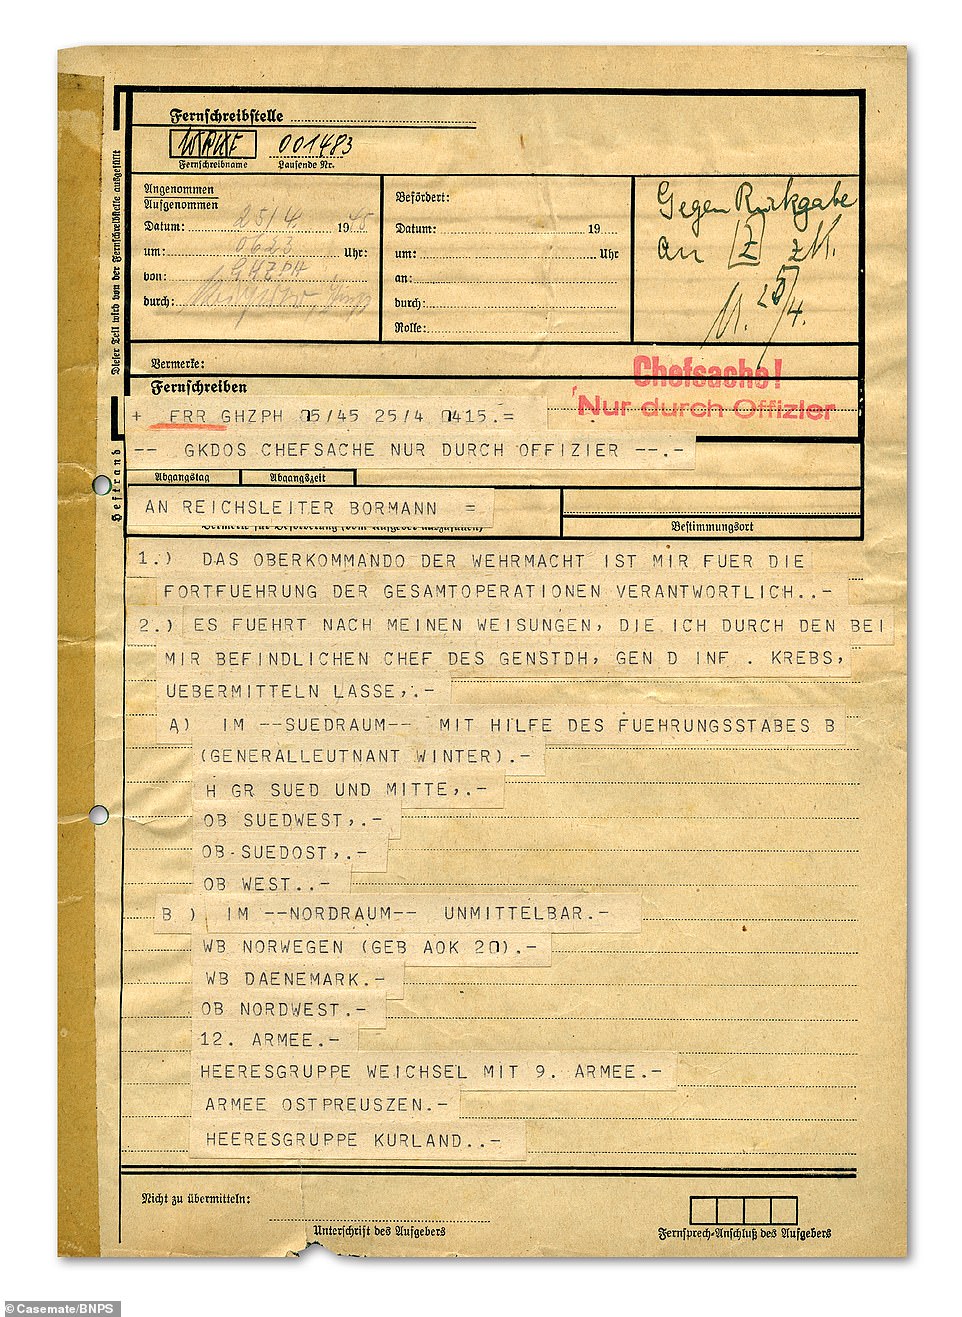 Fernschreibstelle
001483
Fernschreibname Laufende Nr.
Dieser Teil wird von der Fernschreibstelle ausgefüllt
Angenommen
Aufgenommen
Datum: 25/4 1945
um: 0623 Uhr:
von: GHZPH
durch:
Befördert:
Datum: 19
um: Uhr
an:
durch:
Rolle:
Gegen Rückgabe
an Z
25/4.
Vermerke:
Chefsache!
Nur durch Offizier
Fernschreiben
+ ERR GHZPH 05/45 25/4 0415.=
-- GKDOS CHEFSACHE NUR DURCH OFFIZIER --.-
Abgangstag Abgangszeit
Heftrand
AN REICHSLEITER BORMANN =
Vermerk für Beförderung (vom Aufgeber auszufüllen)
Bestimmungsort
1.) DAS OBERKOMMANDO DER WEHRMACHT IST MIR FUER DIE
FORTFUEHRUNG DER GESAMTOPERATIONEN VERANTWORTLICH..-
2.) ES FUEHRT NACH MEINEN WEISUNGEN, DIE ICH DURCH DEN BEI
MIR BEFINDLICHEN CHEF DES GENSTDH, GEN D INF . KREBS,
UEBERMITTELN LASSE,.-
A) IM --SUEDRAUM-- MIT HILFE DES FUEHRUNGSSTABES B
(GENERALLEUTNANT WINTER).-
H GR SUED UND MITTE,.-
OB SUEDWEST,.-
OB-SUEDOST,.-
OB WEST..-
B ) IM --NORDRAUM-- UNMITTELBAR.-
WB NORWEGEN (GEB AOK 20).-
WB DAENEMARK.-
OB NORDWEST.-
12. ARMEE.-
HEERESGRUPPE WEICHSEL MIT 9. ARMEE.-
ARMEE OSTPREUSZEN.-
HEERESGRUPPE KURLAND..-
Nicht zu übermitteln:
Unterschrift des Aufgebers
Fernsprech-Anschluß des Aufgebers
© Casemate/BNPS